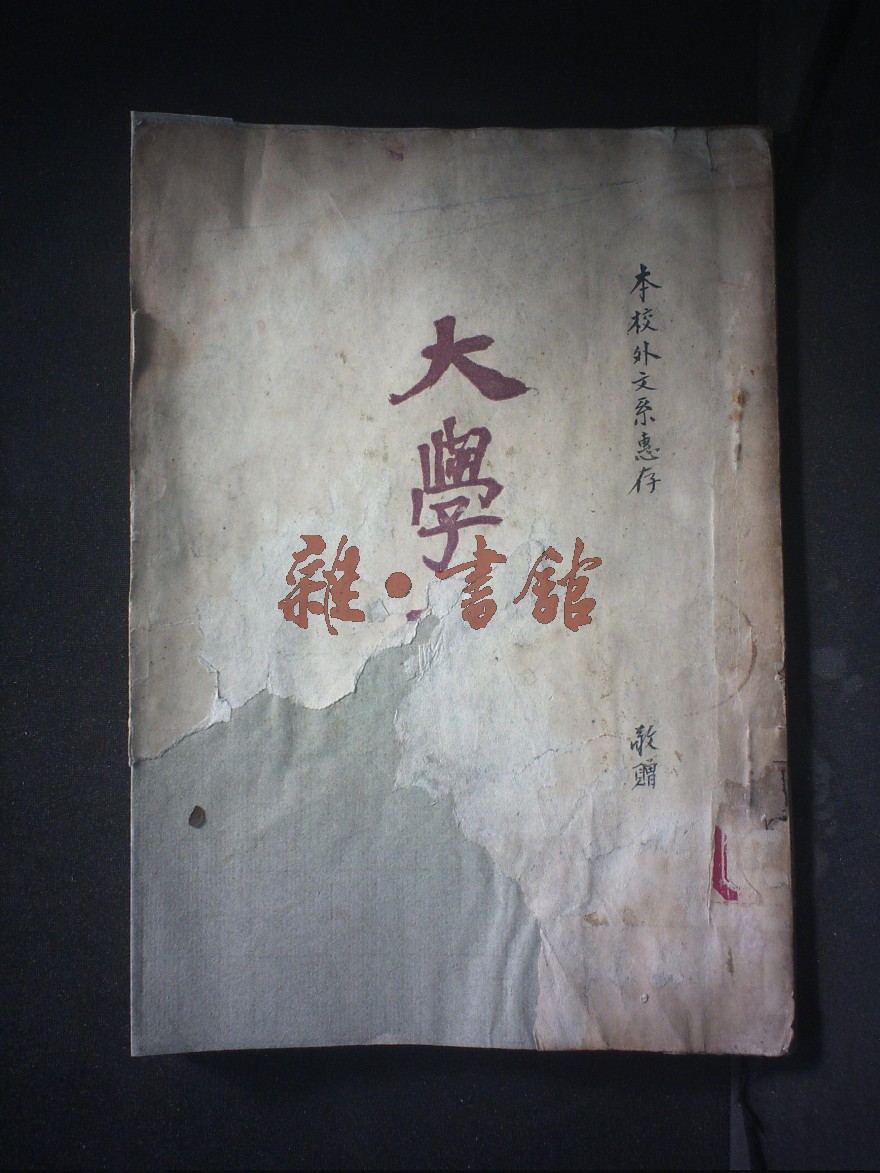 本校外文系惠存
敬贈
大學
雜·書館